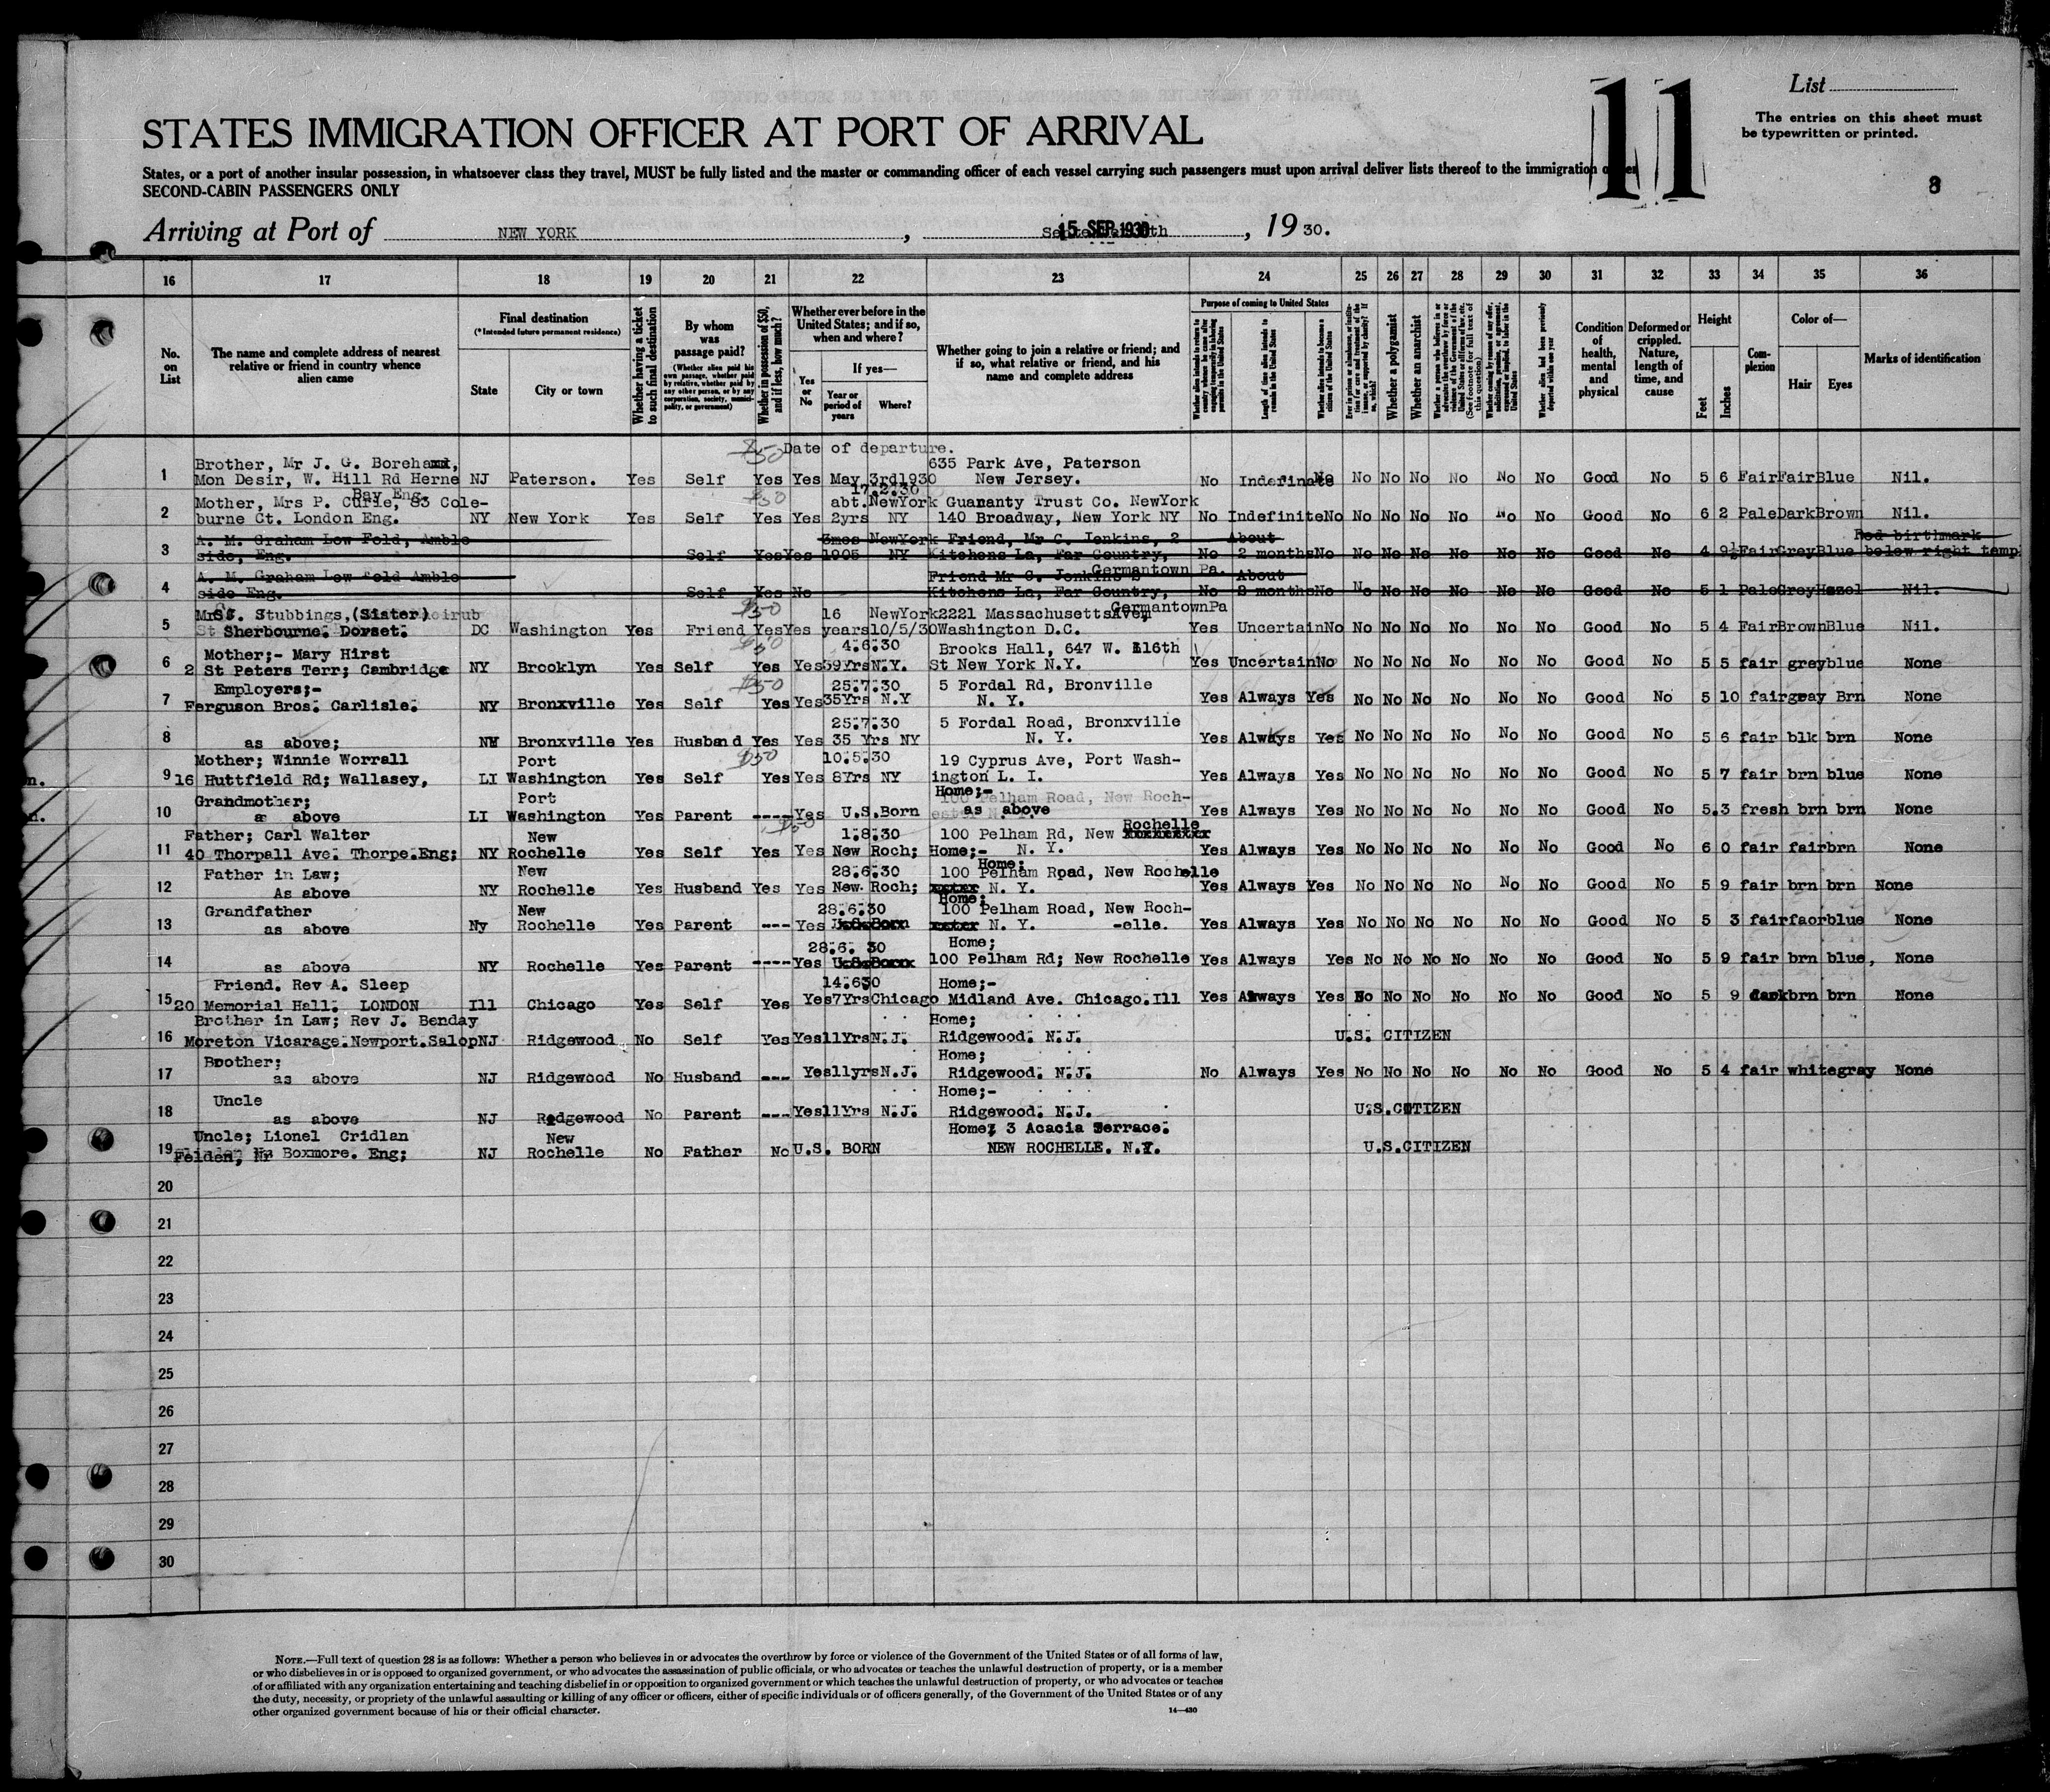 List
The entries on this sheet must
be typewritten or printed.
11
STATES IMMIGRATION OFFICER AT PORT OF ARRIVAL
States, or a port of another insular possession, in whatsoever class they travel, MUST be fully listed and the master or commanding officer of each vessel carrying such passengers must upon arrival deliver lists thereof to the immigration
SECOND-CABIN PASSENGERS ONLY
Arriving at Port of NEW YORK, 15 SEP 1930, 19 30.
16 17 18 19 20 21 22 23 24 25 26 27 28 29 30 31 32 33 34 35 36
No. on List
The name and complete address of nearest relative or friend in country whence alien came
Final destination
(*Intended future permanent residence)
State
City or town
Whether having a ticket to such final destination
By whom was passage paid?
(Whether alien paid his own passage, whether paid by relative, whether paid by any other person, or by any corporation, society, municipality, or government)
Whether in possession of $50, and if less, how much?
Whether ever before in the United States; and if so, when and where?
Yes or No
If yes—
Year or period of years
Where?
Whether going to join a relative or friend; and if so, what relative or friend, and his name and complete address
Purpose of coming to United States
Length of time alien intends to remain in the United States
Whether alien intends to become a citizen of the United States
Whether a polygamist
Whether an anarchist
Condition of health, mental and physical
Deformed or crippled. Nature, length of time, and cause
Height
Feet
Inches
Complexion
Color of—
Hair
Eyes
Marks of identification
$50 Date of departure.
Brother, Mr J. G. Boreham, 635 Park Ave, Paterson
1 Mon Desir, W. Hill Rd Herne NJ Paterson. Yes Self Yes Yes May 3rd 1930 New Jersey. No Indefinate No No No No No No No Good No 5 6 Fair Fair Blue Nil.
Bay Eng. $50 17.2.30
Mother, Mrs P. Curie, 83 Cole- abt. NewYork Guananty Trust Co. NewYork
2 burne Ct. London Eng. NY New York Yes Self Yes Yes 2yrs NY 140 Broadway, New York NY No Indefinite No No No No No No No Good No 6 2 Pale Dark Brown Nil.
A. M. Graham Low Fold, Amble 3mos NewYork Friend, Mr C. Jenkins, 2 About Red birthmark
3 side, Eng. Self Yes Yes 1905 NY Kitchens La, Far Country, No 2 months No No No No No No No Good No 4 9½ Fair Grey Blue below right temp
Germantown Pa.
A. M. Graham Low Fold Amble Friend Mr C. Jenkins 2 About
4 side Eng. Self Yes No Kitchens La, Far Country, No 2 months No No No No No No No Good No 5 1 Pale Grey Hazel Nil.
Germantown Pa
Stubbings, (Sister) $50 16 NewYork 2221 Massachusetts Ave,
5 Sherbourne. Dorset. DC Washington Yes Friend Yes Yes years 10/5/30 Washington D.C. Yes Uncertain No No No No No No No Good No 5 4 Fair Brown Blue Nil.
Mother;- Mary Hirst $50 4.6.30 Brooks Hall, 647 W. 116th
6 2 St Peters Terr; Cambridge NY Brooklyn Yes Self Yes Yes 39Yrs N.Y. St New York N.Y. Yes Uncertain No No No No No No No Good No 5 5 fair grey blue None
Employers;- $50 25.7.30 5 Fordal Rd, Bronville
7 Ferguson Bros. Carlisle. NY Bronxville Yes Self Yes Yes 35Yrs N.Y N. Y. Yes Always Yes No No No No No No Good No 5 10 fair gray Brn None
25.7.30 5 Fordal Road, Bronxville
8 as above; NY Bronxville Yes Husband Yes Yes 35 Yrs NY N. Y. Yes Always Yes No No No No No No Good No 5 6 fair blk brn None
Mother; Winnie Worrall Port $50 10.5.30 19 Cyprus Ave, Port Wash-
9 16 Huttfield Rd; Wallasey, LI Washington Yes Self Yes Yes 8Yrs NY ington L. I. Yes Always Yes No No No No No No Good No 5 7 fair brn blue None
Grandmother; Port Home;-
10 as above LI Washington Yes Parent ---- Yes U.S.Born as above Yes Always Yes No No No No No No Good No 5.3 fresh brn brn None
Father; Carl Walter New $50 1.8.30 100 Pelham Rd, New Rochelle
11 40 Thorpall Ave. Thorpe.Eng; NY Rochelle Yes Self Yes Yes New Roch; Home;- N. Y. Yes Always Yes No No No No No No Good No 6 0 fair fair brn None
Father in Law; New 28.6.30 Home; 100 Pelham Road, New Rochelle
12 As above NY Rochelle Yes Husband Yes Yes New Roch; N. Y. Yes Always Yes No No No No No No Good No 5 9 fair brn brn None
Grandfather New 28.6.30 Home; 100 Pelham Road, New Roch-
13 as above Ny Rochelle Yes Parent --- Yes U.S.Born N. Y. -elle. Yes Always Yes No No No No No No Good No 5 3 fair faor blue None
28.6. 30 Home;
14 as above NY Rochelle Yes Parent ---- Yes 100 Pelham Rd; New Rochelle Yes Always Yes No No No No No No Good No 5 9 fair brn blue, None
Friend. Rev A. Sleep 14.630 Home;-
15 20 Memorial Hall. LONDON Ill Chicago Yes Self Yes Yes 7Yrs Chicago Midland Ave. Chicago.Ill Yes Always Yes No No No No No No Good No 5 9 dark brn brn None
Brother in Law; Rev J. Benday Home;
16 Moreton Vicarage.Newport.Salop NJ Ridgewood No Self Yes Yes 11Yrs N.J. Ridgewood. N.J. U.S. CITIZEN
Brother; Home;
17 as above NJ Ridgewood No Husband --- Yes 11yrs N.J. Ridgewood. N.J. No Always Yes No No No No No No Good No 5 4 fair white gray None
Uncle Home;-
18 as above NJ Ridgewood No Parent --- Yes 11Yrs N.J. Ridgewood. N.J. U.S.CITIZEN
Uncle; Lionel Cridlan New Home; 3 Acacia Terrace.
19 Boxmore. Eng; NJ Rochelle No Father No U.S. BORN NEW ROCHELLE. N.Y. U.S.CITIZEN
20
21
22
23
24
25
26
27
28
29
30
NOTE.—Full text of question 28 is as follows: Whether a person who believes in or advocates the overthrow by force or violence of the Government of the United States or of all forms of law,
or who disbelieves in or is opposed to organized government, or who advocates the assassination of public officials, or who advocates or teaches the unlawful destruction of property, or is a member
of or affiliated with any organization entertaining and teaching disbelief in or opposition to organized government or which teaches the unlawful destruction of property, or who advocates or teaches
the duty, necessity, or propriety of the unlawful assaulting or killing of any officer or officers, either of specific individuals or of officers generally, of the Government of the United States or of any
other organized government because of his or their official character.
14—430